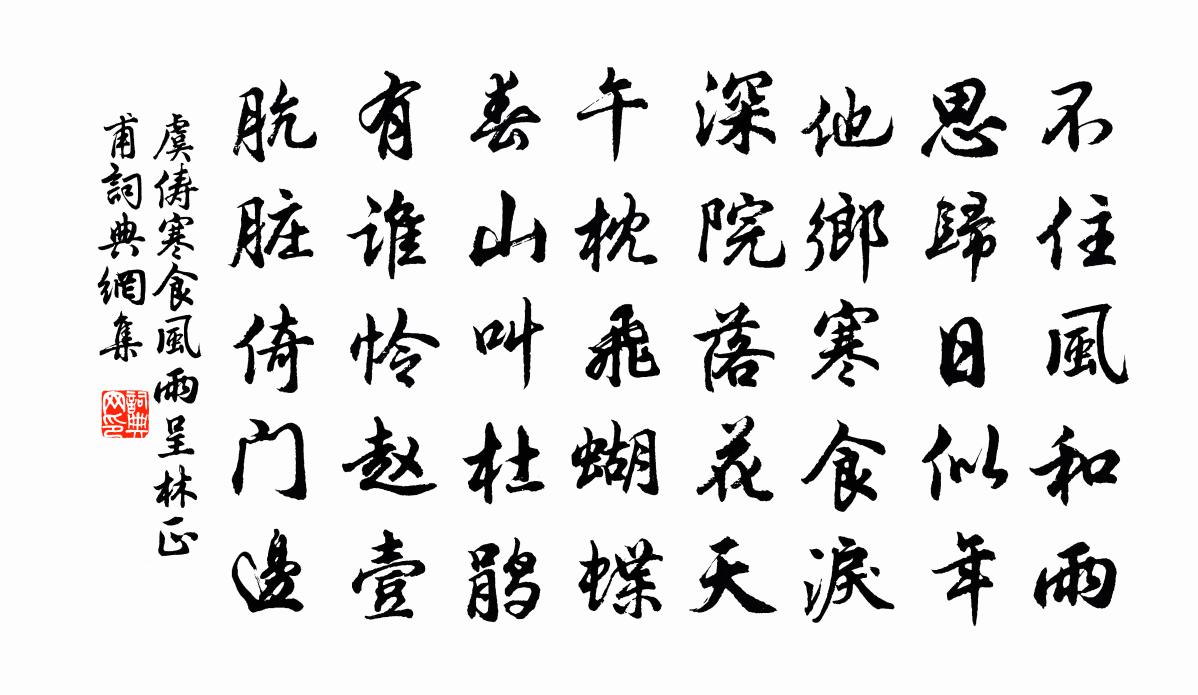 不住風和雨
思歸日似年
他鄉寒食淚
深院落花天
午枕飛蝴蝶
春山叫杜鹃
有谁怜赵壹
肮脏倚门邊
虞儔寒食風雨呈林正
甫詞典網集
詞典网印